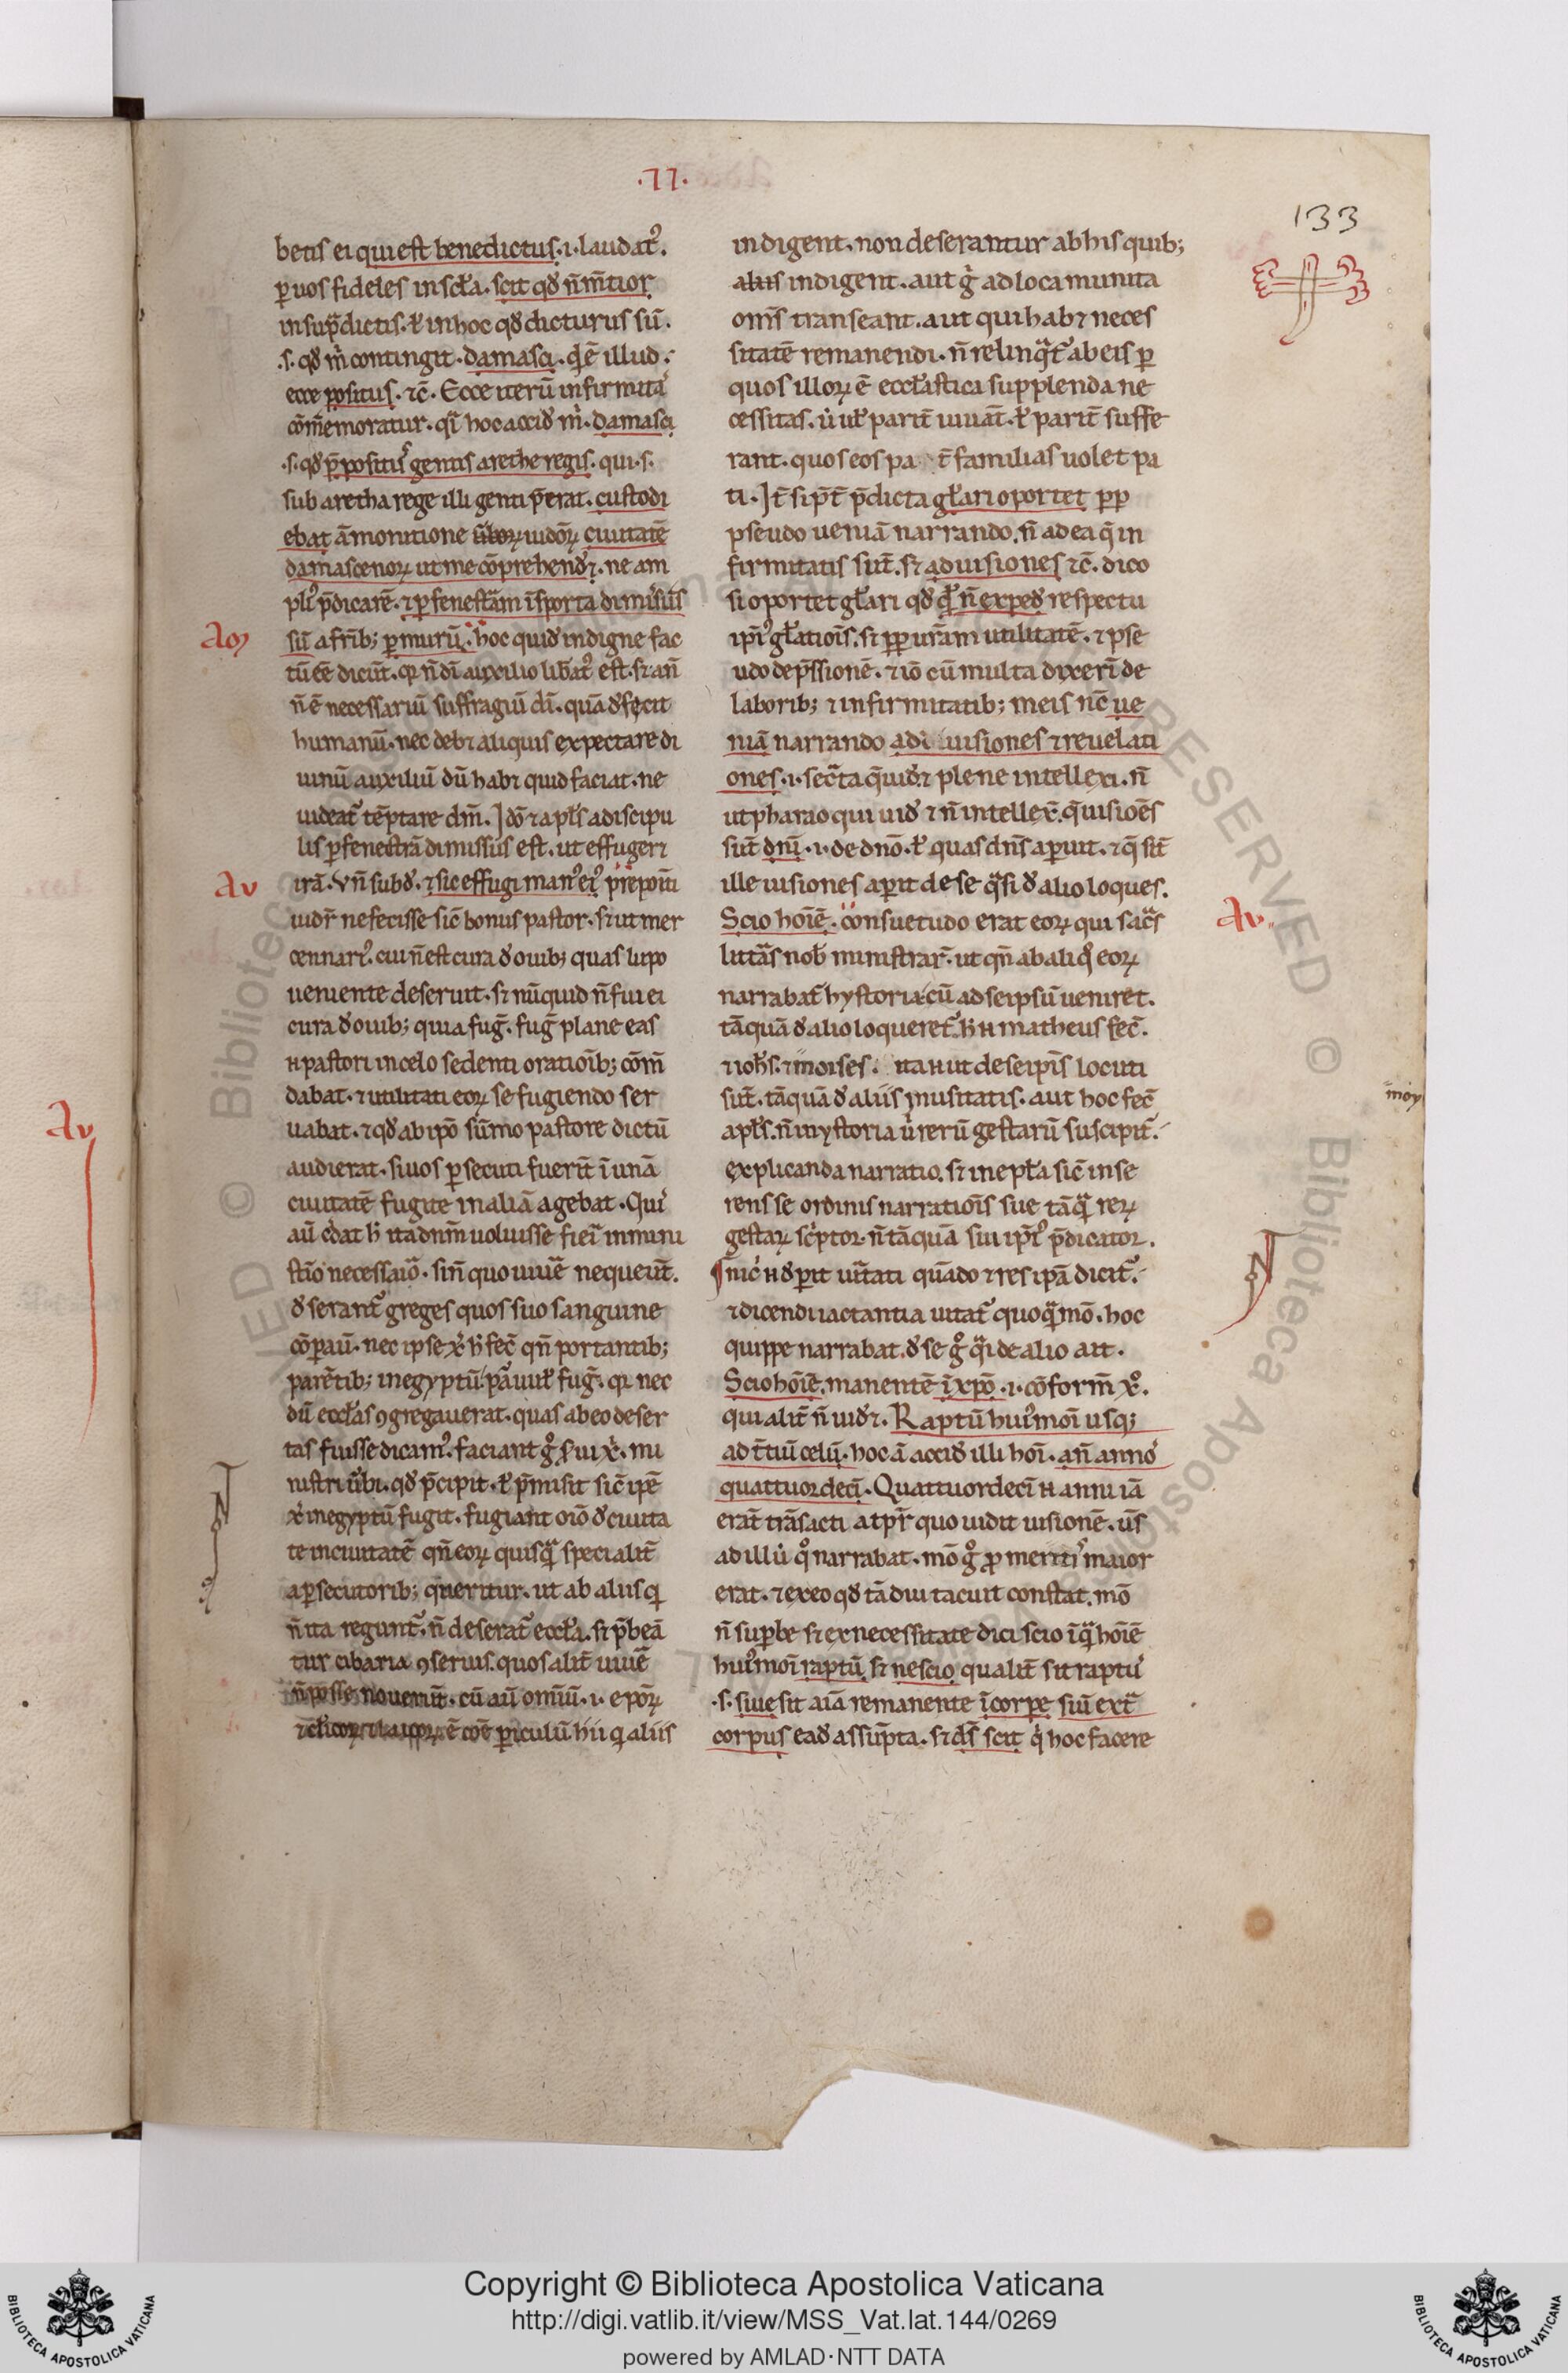 ·II·
133
betis ei qui est benedictus .i. laudat᷒.
ꝑ uos fideles in sc̄la. scit qd̄ n̄ m̄tior
in sup̄dictis. ł in hoc qd̄ dicturus sū.
.s. qd̄ m̄ contingit. damasci. q̄ ē illud.
ecce positus. ⁊c̄. Ecce iterū infirmita
cōmemoratur. hoc accid̄ m̄. damasci
.s. qd̄ p̄positus gentis arethe regis. qui .s.
sub aretha rege illi genti p̄erat. custodi
ebat āmonitione iudōꝝ ciuitatē
damascenoꝝ ut me cōprehend̄et. ne am
pli᷒ p̄dicarē. ⁊ ꝑ fenestrām ī sporta dimisus
Ao
sū a frīb; ꝑ murū. hoc quid indigne fac
tū eē dicūt. qꝛ n̄ dī auxilio lib̄at᷒ est. sꝫ an̄
n̄ ē necessariū suffragiū dī. quā d̄fecit
humanū. nec debꝫ aliquis expectare di
uinū auxiliū dū habꝫ quid faciat. ne
uideat᷒ tēptare dm̄. Idō ⁊ apl̄s a discipu
lis ꝑ fenestrā dimissus est. ut effugerꝫ
Au
irā. Vn̄ subd̄. ⁊ sic effugi man᷒ ei᷒
uidr̄ ne fecisse sic̄ bonus pastor. sꝫ ut mer
cennari᷒. cui n̄ est cura d̄ ouib; quas lupo
ueniente deseruit. sꝫ nūquid n̄ fui ei
cura d̄ ouib; quia fuḡ. fuḡ plane eas
pastori in celo sedenti oratiōib; cōm̄
dabat. ⁊ utilitati eoꝝ se fugiendo ser
Au
uabat. ⁊ qd̄ ab ipō sūmo pastore dictū
audierat. si uos ꝑsecuti fuerīt ī unā
ciuitatē fugite in aliā agebat. Qui
aū c̄dat h̄ ita dnm̄ uoluisse fieri in mini
st̄io necessaio. sin̄ quo uiuē nequeūt.
d̄serant᷒ greges quos suo sanguine
cōparau. nec ipse x̄ h̄ fec̄ qn̄ portantib;
parētib; in egyptū fuḡ. qꝛ nec
dū eccl̄as ꝯgregauerat. quas ab eo deser
tas fuisse dicam᷒. faciant ḡ x̄. mi
nistri ubi. qd̄ p̄cipit. ł p̄misit sic̄ ipē
x̄ in egyptū fugit. fugiant oīo d̄ ciuita
te in ciuitatē qn̄ eoꝝ quisq̄ specialit̄
a ꝑsecutorib; queritur. ut ab aliis q
n̄ ita regunt᷒. n̄ deserat᷒ eccl̄a. sꝫ p̄beā
tur cibaria ꝯseruis. quos alit̄ uiuē
n̄ posse nouerūt. cū aū omīū .i. epōꝝ
⁊ cl̄icoꝝ ⁊ laicoꝝ ē cōe ꝑiculū. hii q aliis
indigent. non deserantur ab his quib;
aliis indigent. aut ḡ ad loca munita
om̄s transeant. aut qui habꝫ neces
sitatē remanendi. n̄ relinq̄t᷒ ab eis ꝑ
quos illoꝝ ē eccl̄astica supplenda ne
cessitas. ut parit̄ uiuāt. ł parit̄ suffe
rant. quos eos familias uolet pa
ti. It̄ p̄dicta gl̄ari oportet ꝓꝑ
pseudo ueniā narrando. n̄ ad ea q̄ in
firmitatis sūt. sꝫ ad uisiones ⁊c̄. dico
si oportet gl̄ari qd̄ n̄ exped̄ respectu
ipi᷒ gl̄atiōis. sꝫ ꝓꝑ ur̄am utilitatē. ⁊ pse
udo dep̄ssionē. ⁊ iō cū multa dixerī de
laborib; ⁊ infirmitatib; meis nc̄ ue
niā narrando ad uisiones ⁊ reuelati
ones .i. secreta q̄ uid̄ ⁊ plene intellexi. n̄
ut pharao qui uid̄ ⁊ n̄ intellex̄. q̄ uisiōes
sūt dnī .i. de dnō. ł quas dn̄s aperuit. ⁊ q̄ sīt
ille uisiones aperit de se q̄si d̄ alio loques.
Au
Scio hoīē. consuetudo erat eoꝝ qui sac̄s
litt̄as nob̄ ministrar̄. ut qn̄ ab aliq̄ eoꝝ
narrabat᷒ hystoria cū ad seipsū ueniret.
tāquā d̄ alio loqueret᷒. matheus fec̄.
⁊ ioh̄s. ⁊ moises. ita ut de seip̄is locuti
sūt. tāquā d̄ aliis inusitatis. aut hoc fec̄
apl̄s. n̄ in ystoria rerū gestarū suscipit.
explicanda narratio. sꝫ in epl̄a sic̄ inse
rens se ordinis narratiōis sue tāq̄ reꝝ
gestaꝝ sc̄ptor. n̄ tāquā sui ipī᷒ p̄dicator.
¶ nic̄ d̄perit uītati quādo ⁊ res ipā dicit᷒.
⁊ dicendi iactantia uitat᷒ quoq̄mō. hoc
quippe narrabat. d̄ se g̊ q̄i de alio ait.
Scio hoīē. manentē ī xpō .i. cōform̄ x̄.
qui alit̄ n̄ uid̄ꝫ. Raptū hui᷒moī usq;
ad t̄tiū celū. hoc ā accid̄ illi hoī. an̄ anno
quattuordeci. Quattuordecī anni iā
erāt trāsacti quo uidit uisionē. us
ad illū q̊ narrabat. mō g̊ maior
erat. ⁊ ex eo qd̄ tā diu tacuit constat. mō
n̄ sup̄be sꝫ ex necessitate dici scio īq̄ hoīē
hui᷒moī raptū. sꝫ nescio qualit̄ sit raptu
.s. siue sit aīa remanente ī corpe siu ext̄
corpus ead̄ assūpta. sꝫ ds̄ scit q̄ hoc facere
Copyright © Biblioteca Apostolica Vaticana
http://digi.vatlib.it/view/MSS_Vat.lat.144/0269
powered by AMLAD·NTT DATA
BIBLIOTECA APOSTOLICA VATICANA
BIBLIOTECA APOSTOLICA VATICANA